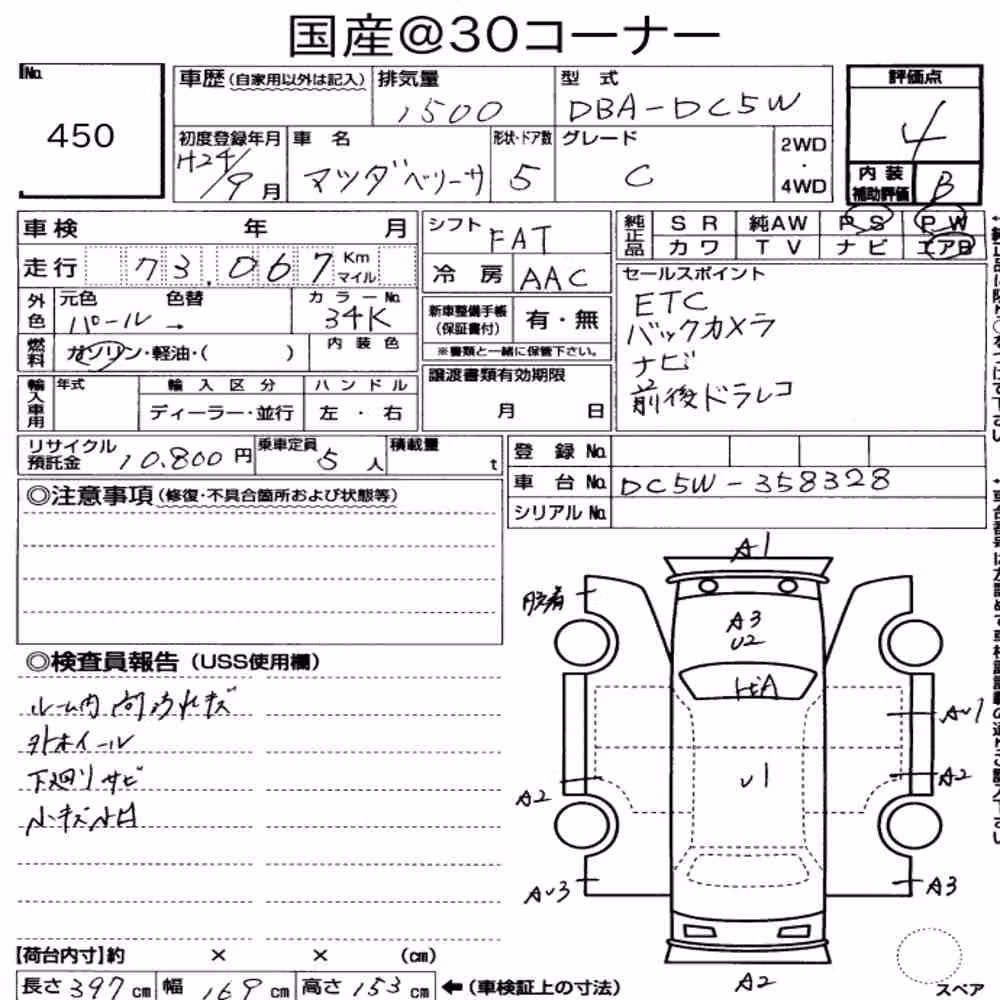 国産@30コーナー
No.
450
車歴(自家用以外は記入)
排気量
1500
型式
DBA-DC5W
評価点
4
内装
補助評価
B
初度登録年月
H24/9月
車名
マツダ ベリーサ
形状・ドア数
5
グレード
C
2WD
・
4WD
車検 年 月
走行 73,067 Km
マイル
外色
元色 色替
パール →
カラーNo.
34K
燃料
ガソリン・軽油・( )
内装色
輸入車用
年式
輸入区分
ディーラー・並行
ハンドル
左・右
シフト FAT
冷房 AAC
新車整備手帳
(保証書付)
有・無
※書類と一緒に保管下さい。
譲渡書類有効期限
月 日
純正品
SR 純AW PS PW
カワ TV ナビ エアB
セールスポイント
ETC
バックカメラ
ナビ
前後ドラレコ
リサイクル
預託金 10.800円
乗車定員
5人
積載量
t
登録No.
車台No. DC5W-358328
シリアルNo.
◎注意事項(修復・不具合箇所および状態等)
◎検査員報告(USS使用欄)
ルーム内
外ホイール
下廻りサビ
小キズ小凹
A1
A3
U2
トビA
AU1
U1
A2
A2
AU3
A3
A2
スペア
【荷台内寸】約 × × (cm)
長さ397cm 幅169cm 高さ153cm ←(車検証上の寸法)